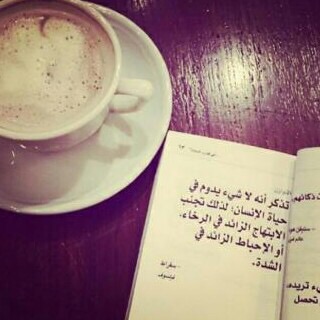 تذكر أنه لا شيء يدوم في
حياة الانسان؛ لذلك تجنب
الابتهاج الزائد في الرخاء،
أو الإحباط الزائد في
الشدة.
– سقراط
فيلسوف
ت ذكائهم
يء تريده
تحصل